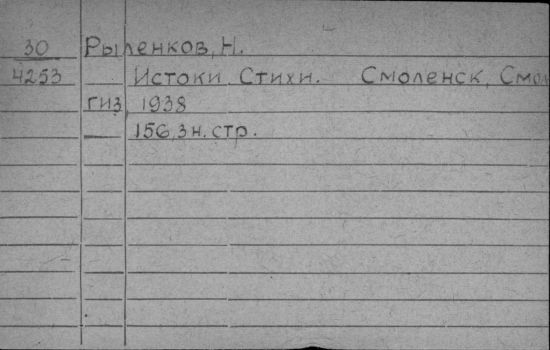 30 Рыленков, Н.
4253 Истоки Стихи. Смоленск, Смол
гиз 1938
156, 3 н. стр.